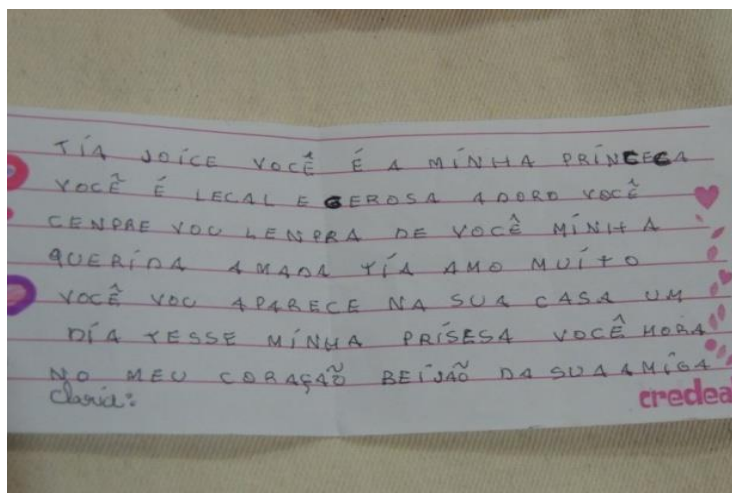 TÍA JOÍCE VOCÊ É A MÍNHA PRÍNCECA
VOCÊ É LEGAL E GEROSA ADORO VOCÊ
CENPRE VOU LENPRA DE VOCÊ MÍNHA
QUERÍDA AMADA TÍA AMO MUÍTO
VOCÊ VOU APARECE NA SUA CASA UM
DÍA TESSE MÍNHA PRÍSESA VOCÊ MORA
NO MEU CORAÇÃO BEÍJÃO DA SUA AMÍGA
credea